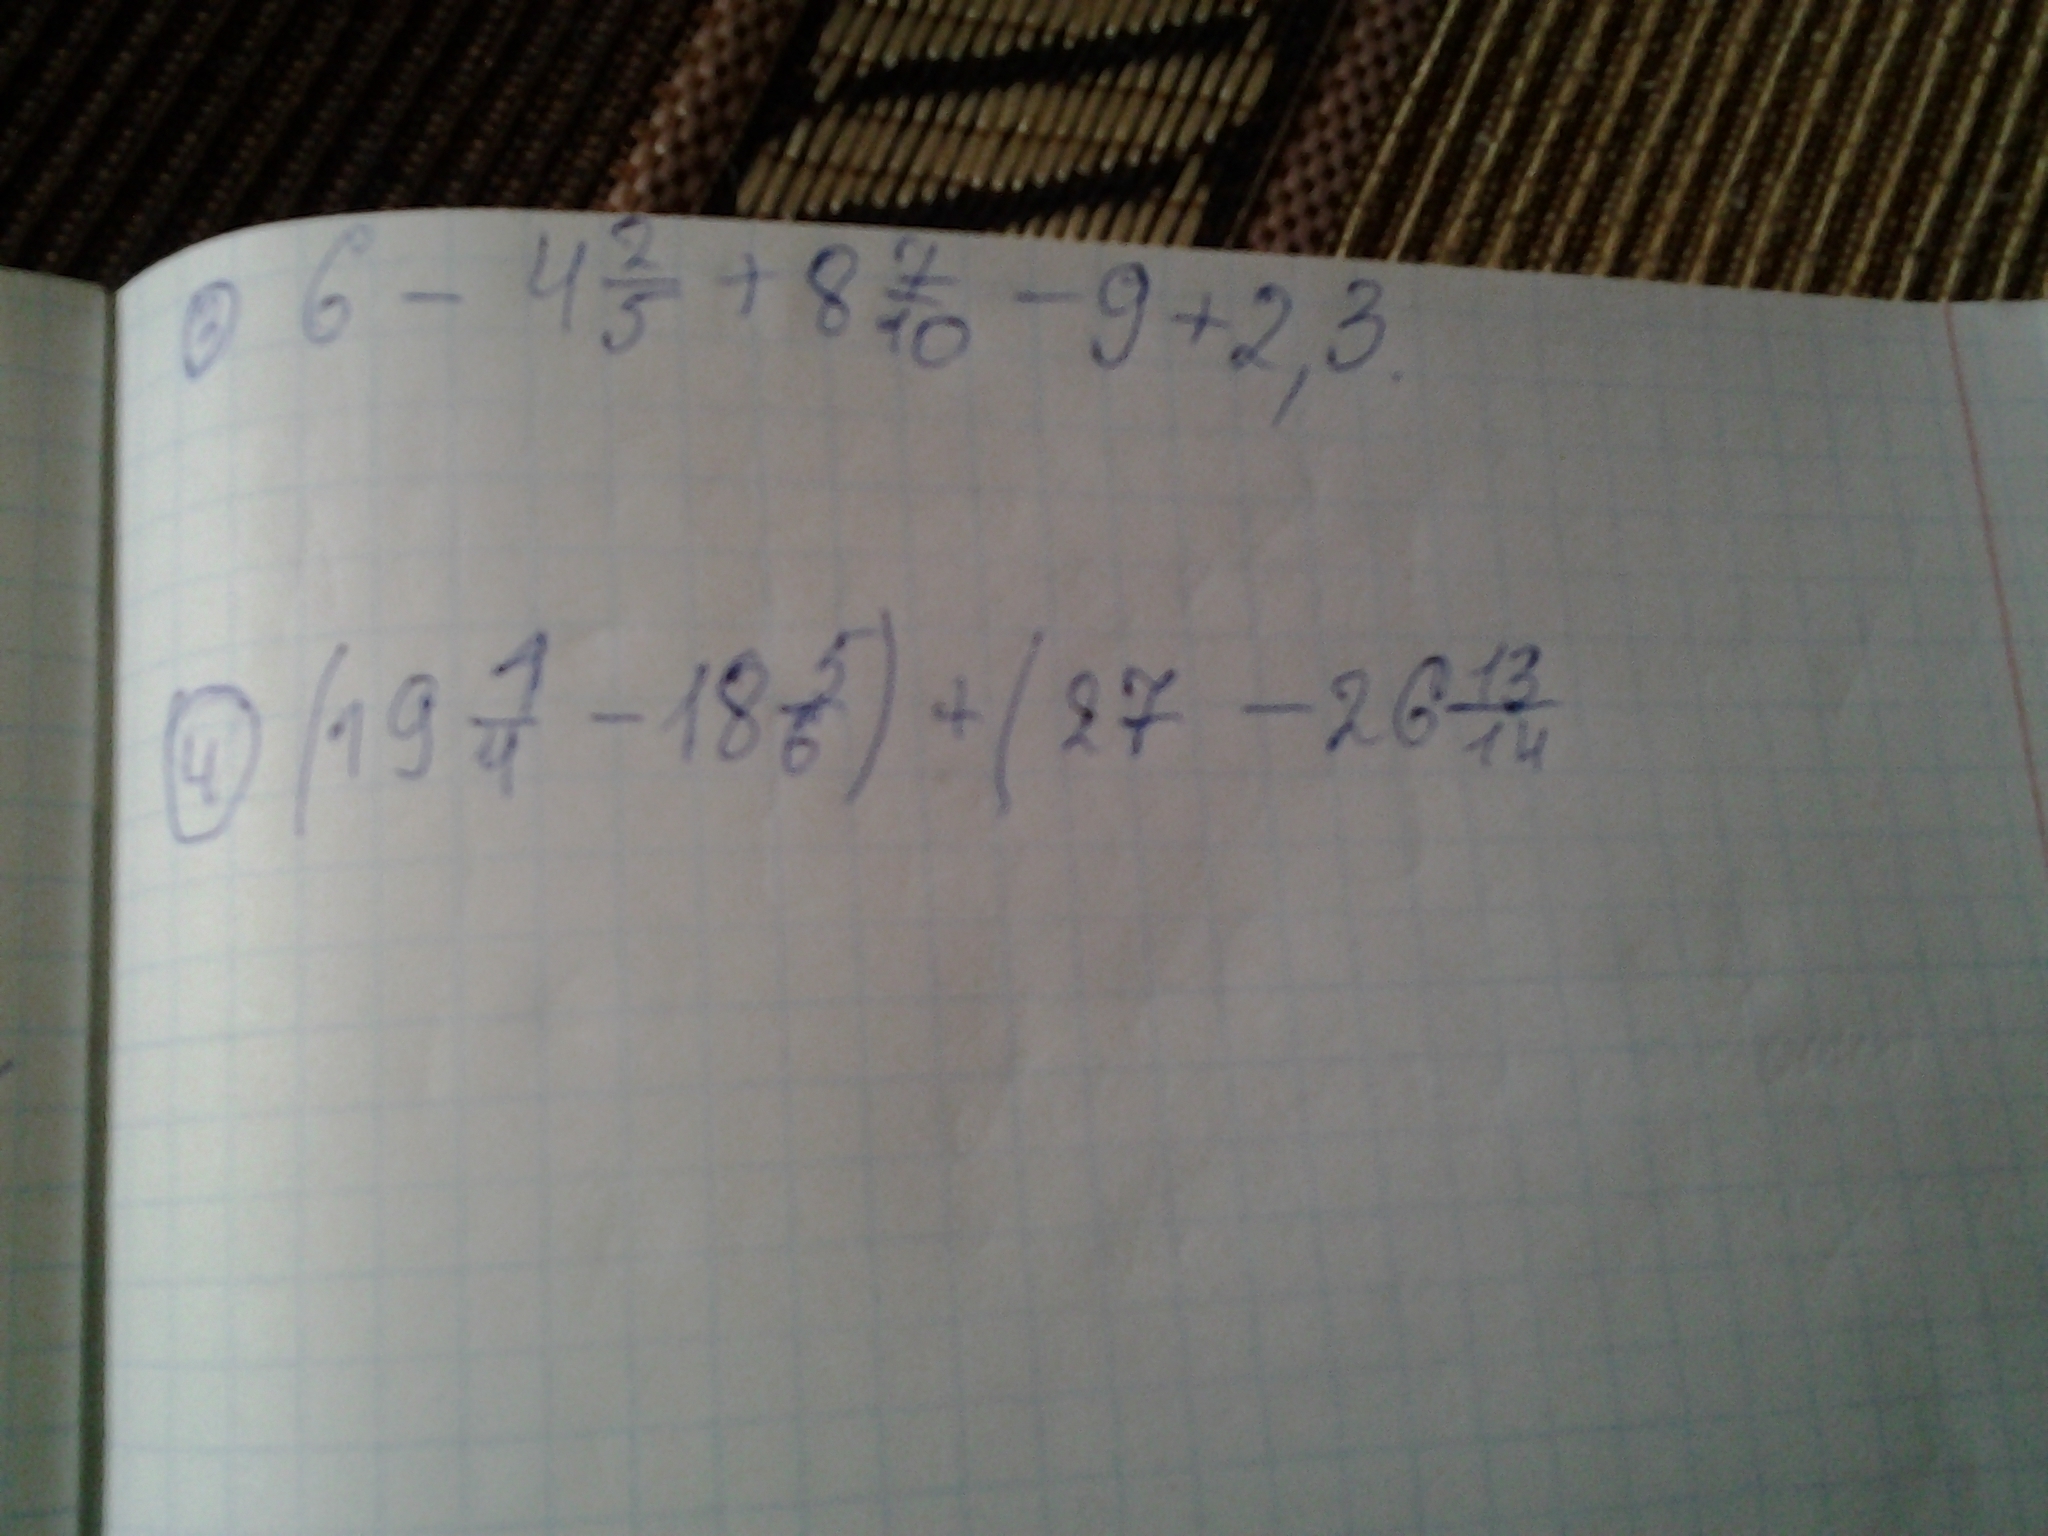 ③ 6 - 4 2/5 + 8 7/10 - 9 + 2,3.
④ (19 1/4 - 18 5/6) + (27 - 26 13/14